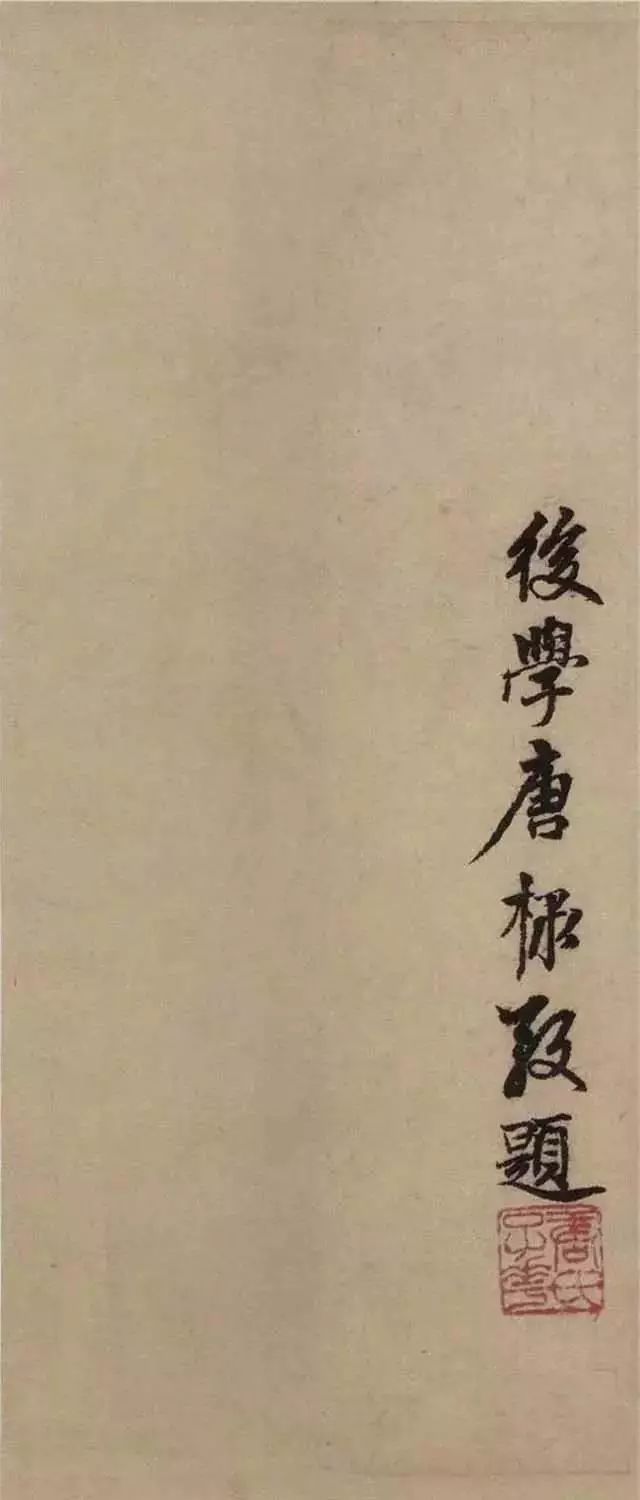 後學唐棣敬題
唐氏
子華